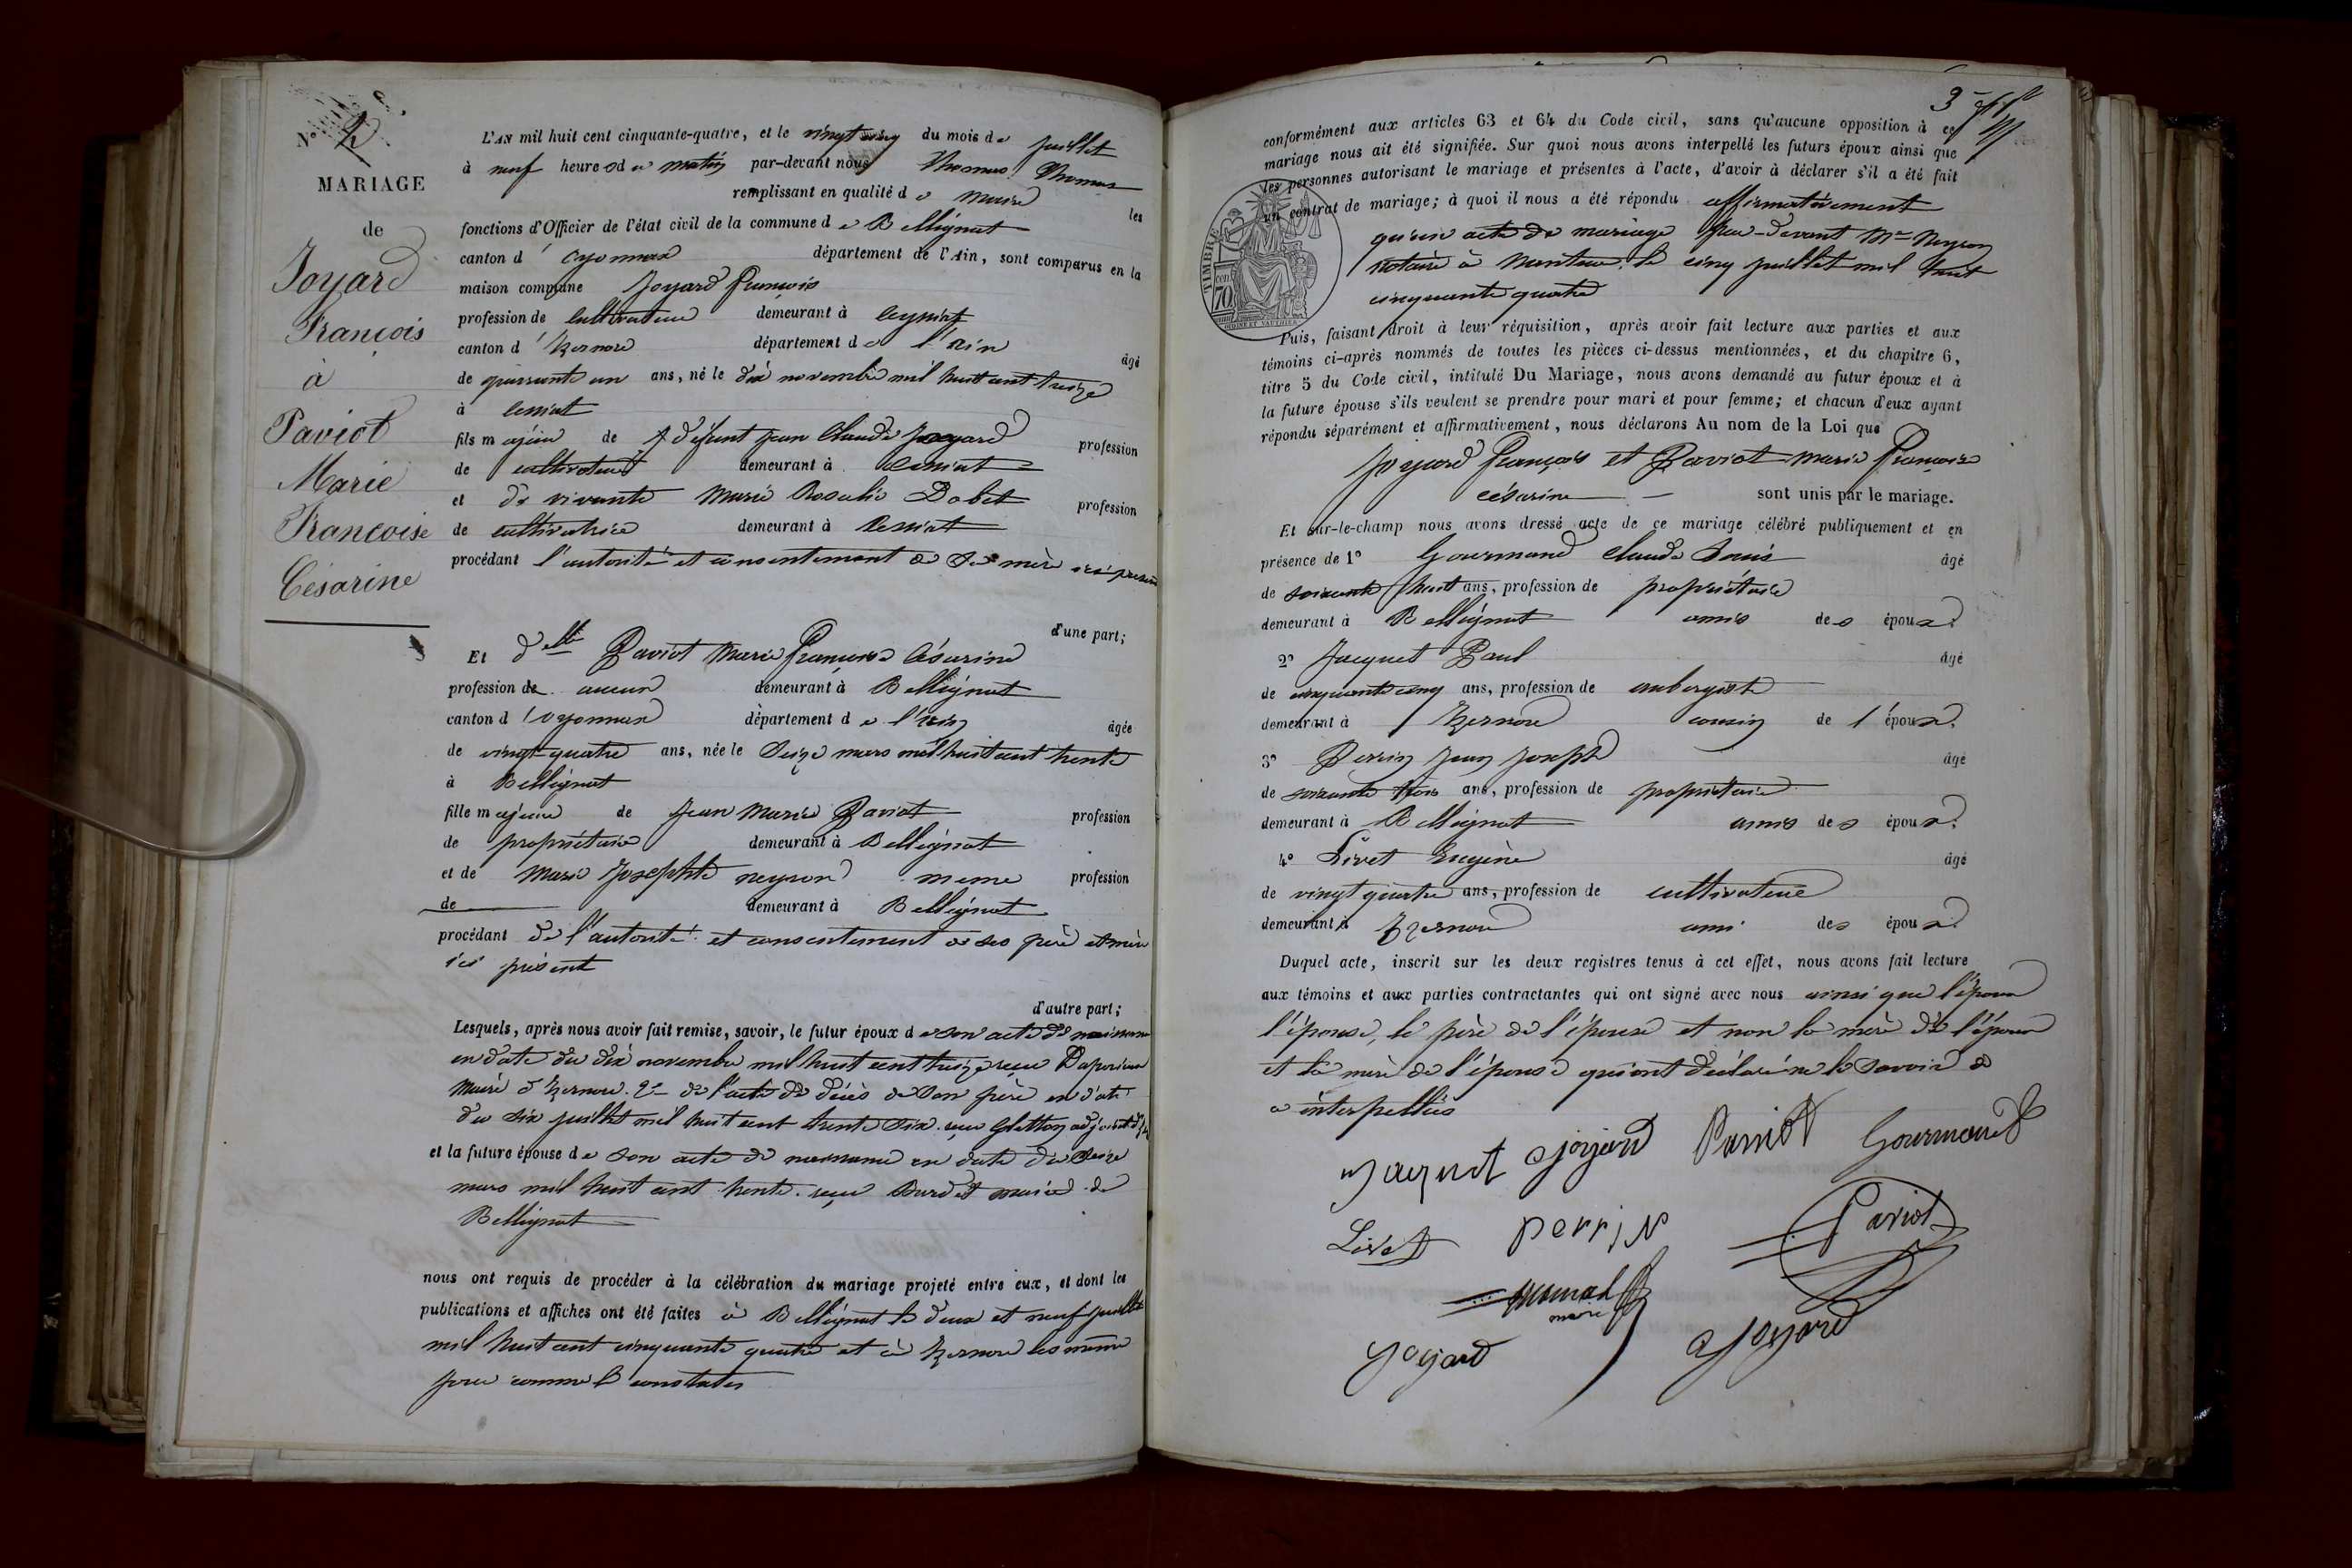 N° 2
MARIAGE
de
Joyard
François
à
Paviot
Marie
Francoise
Césarine
L'AN mil huit cent cinquante-quatre, et le vingt cinq du mois de juillet
à neuf heures de matin par-devant nous Thomas Thomas
remplissant en qualité de maire les
fonctions d'Officier de l'état civil de la commune de Bellignat
canton d'oyonnax département de l'Ain, sont comparus en la
maison commune Joyard François
profession de cultivateur demeurant à ceyssiat
canton d'Izernore département de l'ain âgé
de quarante un ans, né le dix novembre mil huit cent treize
à cessiat
fils majeur de défunt jean Claude Joyard profession
de cultivateur demeurant à Cessiat
et de vivante Marie Rosalie Dobet profession
de cultivatrice demeurant à Cessiat
procédant l'autorité et consentement de sa mère ici présente
d'une part;
Et delle Paviot Marie Françoise Césarine
profession de aucun demeurant à Bellignat
canton d'oyonnax département de l'ain âgée
de vingt-quatre ans, née le Seize mars mil huit cent trente
à Bellignat
fille majeure de Jean Marie Paviot profession
de propriétaire demeurant à Bellignat
et de Marie Josephte neyron meme profession
de demeurant à Bellignat
procédant de l'autorité et consentement de ses père et mère
ici présent
d'autre part;
Lesquels, après nous avoir fait remise, savoir, le futur époux de son acte de naissance
en date du dix novembre mil huit cent treize reçu
Maire d'Izernore 2° de l'acte de décès de son père en date
du six juillet mil huit cent trente six reçu Gletton adjoint
et la future épouse de son acte de naissance en date du Seize
mars mil huit cent trente reçu maire de
Bellignat
nous ont requis de procéder à la célébration du mariage projeté entre eux, et dont les
publications et affiches ont été faites à Bellignat le deux et neuf juillet
mil huit cent cinquante quatre et à Izernore les même
jour comme le constates
3
conformément aux articles 63 et 64 du Code civil, sans qu'aucune opposition à ce
mariage nous ait été signifiée. Sur quoi nous avons interpellé les futurs époux ainsi que
les personnes autorisant le mariage et présentes à l'acte, d'avoir à déclarer s'il a été fait
un contrat de mariage; à quoi il nous a été répondu affirmativement
qu'un acte de mariage par-devant Me Neyron
notaire à Nantua le cinq juillet mil huit
cinquante quatre
TIMBRE
70
Puis, faisant droit à leur réquisition, après avoir fait lecture aux parties et aux
témoins ci-après nommés de toutes les pièces ci-dessus mentionnées, et du chapitre 6,
titre 5 du Code civil, intitulé Du Mariage, nous avons demandé au futur époux et à
la future épouse s'ils veulent se prendre pour mari et pour femme; et chacun d'eux ayant
répondu séparément et affirmativement, nous déclarons Au nom de la Loi que
Joyard François et Paviot Marie Françoise
césarine sont unis par le mariage.
Et sur-le-champ nous avons dressé acte de ce mariage célébré publiquement et en
présence de 1° Gourmand Claude Louis âgé
de soixante huit ans, profession de propriétaire
demeurant à Bellignat amis des époux
2° Jacquet Paul âgé
de cinquante cinq ans, profession de aubergiste
demeurant à Izernore cousin de l'époux
3° Perrin Jean Joseph âgé
de soixante trois ans, profession de propriétaire
demeurant à Bellignat amis des époux
4° Livet Eugène âgé
de vingt quatre ans, profession de cultivateur
demeurant à Izernore ami des époux
Duquel acte, inscrit sur les deux registres tenus à cet effet, nous avons fait lecture
aux témoins et aux parties contractantes qui ont signé avec nous ainsi que l'époux
l'épouse, le père de l'épouse et non la mère de l'époux
et la mère de l'épouse qui ont déclaré ne le savoir de
ce interpellés
Jaquet Joyard Paviot Gourmand
Livet perrin Paviot
maire
Joyard Joyard